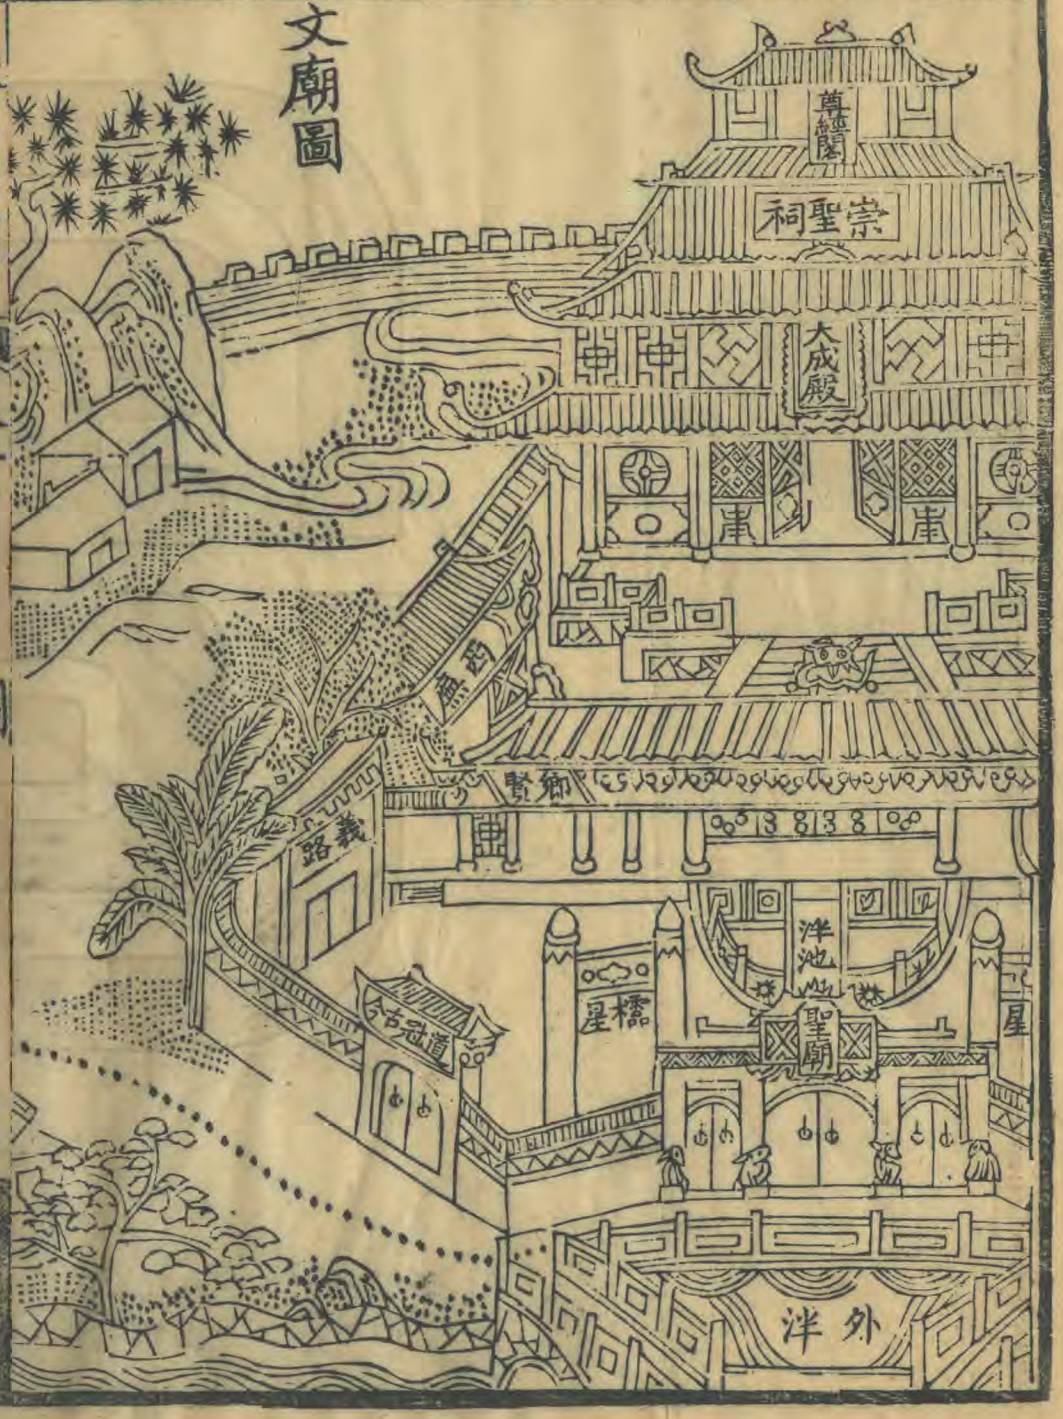 文廟圖
尊經閣
崇聖祠
大成殿
西廡
鄉賢
義路
泮池
道冠古今
星橋
聖廟
星
外泮